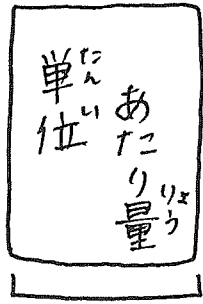 単位
たんい
あたり量
りょう